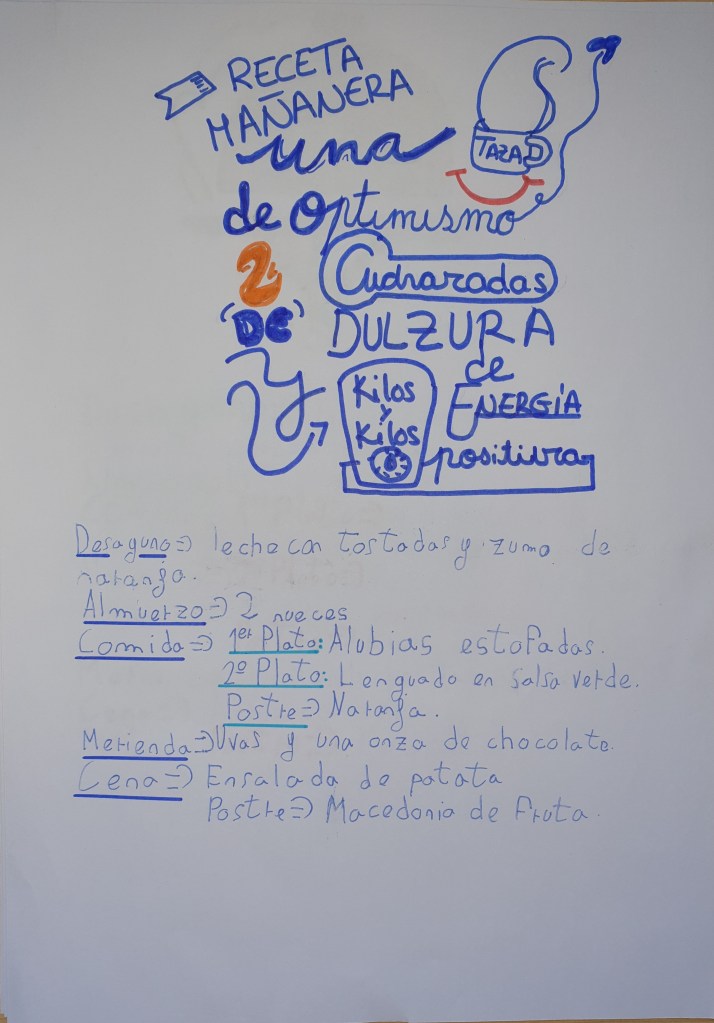 RECETA
MAÑANERA
una TAZA
de Optimismo
2 Cucharadas
"DE" DULZURA
y Kilos de
y ENERGÍA
Kilos positiva
Desayuno => leche con tostadas y zumo de
naranja.
Almuerzo => 2 nueces
Comida => 1er Plato: Alubias estofadas.
2º Plato: Lenguado en salsa verde.
Postre => Naranja.
Merienda => Uvas y una onza de chocolate.
Cena => Ensalada de patata
Postre => Macedonia de fruta.